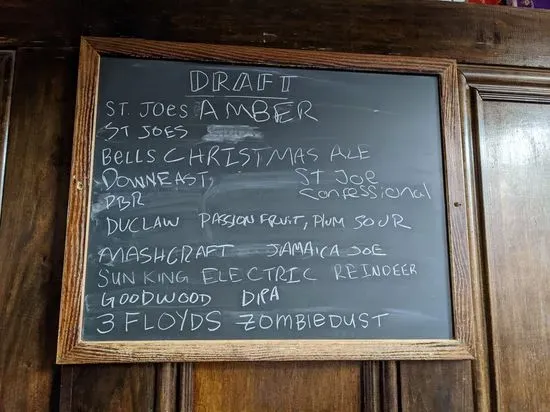 DRAFT
ST. JOES AMBER
ST JOES
BELLS CHRISTMAS ALE
DOWNEAST,
ST JOE
Confessional
PBR
DUCLAW PASSION FRUIT, PLUM SOUR
MASHCRAFT JAMAICA JOE
SUN KING ELECTRIC REINDEER
GOODWOOD DIPA
3 FLOYDS ZOMBIEDUST